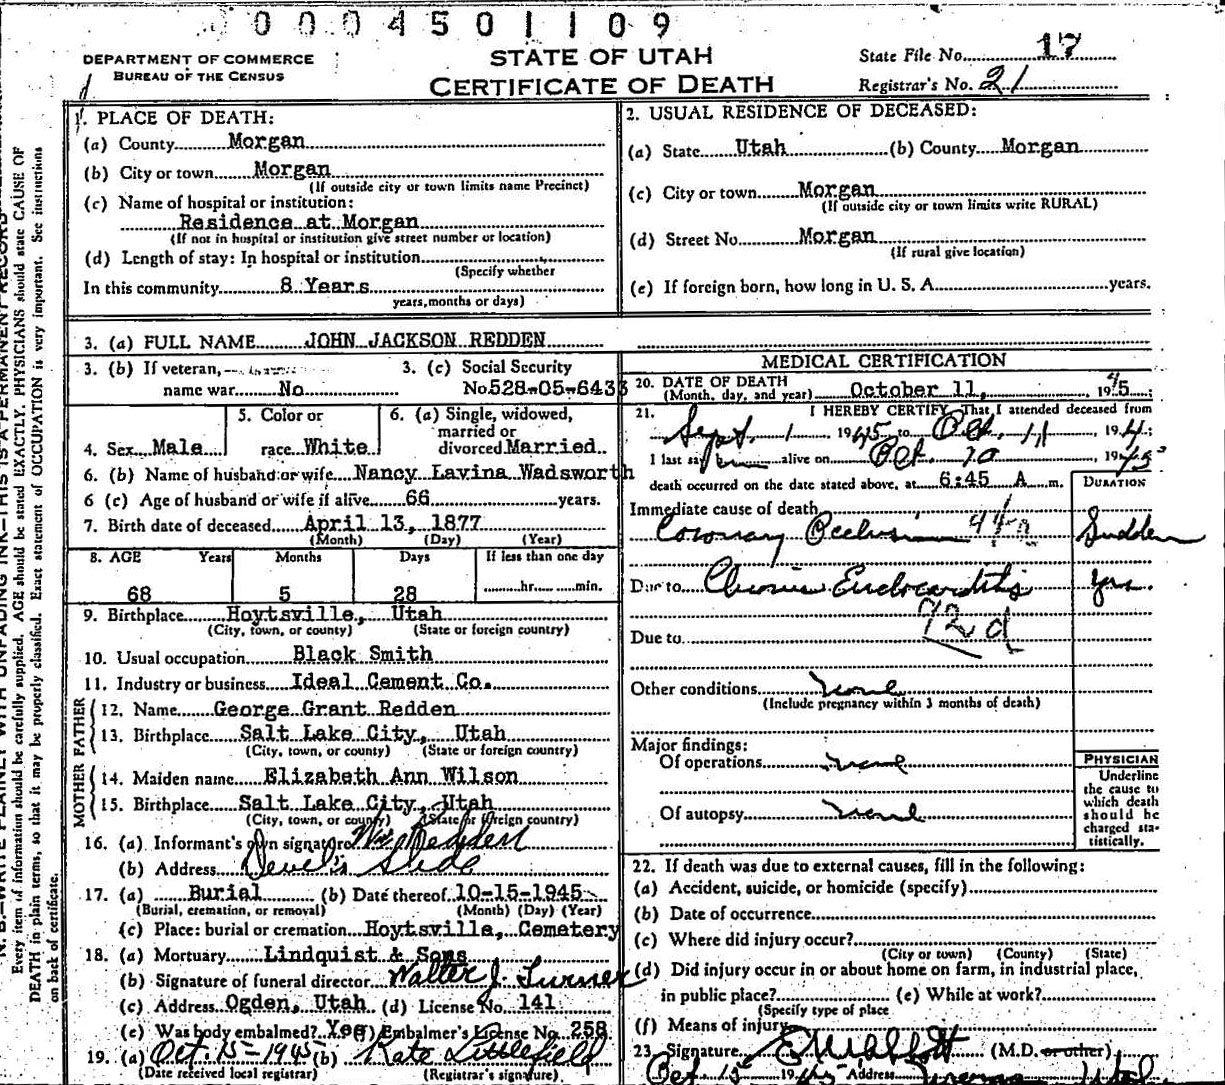 0004501109
DEPARTMENT OF COMMERCE
BUREAU OF THE CENSUS
STATE OF UTAH
CERTIFICATE OF DEATH
State File No. 17
Registrar's No. 21
1. PLACE OF DEATH:
(a) County Morgan
(b) City or town Morgan
(If outside city or town limits name Precinct)
(c) Name of hospital or institution:
Residence at Morgan
(If not in hospital or institution give street number or location)
(d) Length of stay: In hospital or institution
(Specify whether
In this community 8 Years
years, months or days)
2. USUAL RESIDENCE OF DECEASED:
(a) State Utah (b) County Morgan
(c) City or town Morgan
(If outside city or town limits write RURAL)
(d) Street No. Morgan
(If rural give location)
(e) If foreign born, how long in U. S. A. years.
3. (a) FULL NAME JOHN JACKSON REDDEN
3. (b) If veteran,
name war No
3. (c) Social Security
No. 528-05-6433
4. Sex Male
5. Color or
race White
6. (a) Single, widowed,
married or
divorced Married
6. (b) Name of husband or wife Nancy Lavina Wadsworth
6 (c) Age of husband or wife if alive 66 years.
7. Birth date of deceased April 13, 1877
(Month) (Day) (Year)
8. AGE Years Months Days If less than one day
68 5 28 hr. min.
9. Birthplace Hoytsville, Utah
(City, town, or county) (State or foreign country)
10. Usual occupation Black Smith
11. Industry or business Ideal Cement Co.
FATHER
12. Name George Grant Redden
13. Birthplace Salt Lake City, Utah
(City, town, or county) (State or foreign country)
MOTHER
14. Maiden name Elizabeth Ann Wilson
15. Birthplace Salt Lake City, Utah
(City, town, or county) (State or foreign country)
16. (a) Informant's own signature Wm Redden
(b) Address Devel's Slide
17. (a) Burial (b) Date thereof 10-15-1945
(Burial, cremation, or removal) (Month) (Day) (Year)
(c) Place: burial or cremation Hoytsville, Cemetery
18. (a) Mortuary Lindquist & Sons
(b) Signature of funeral director Walter J. Turner
(c) Address Ogden, Utah (d) License No. 141
(e) Was body embalmed? Yes (f) Embalmer's License No. 258
19. (a) Oct. 15-1945 (b) Kate Littlefield
(Date received local registrar) (Registrar's signature)
MEDICAL CERTIFICATION
20. DATE OF DEATH
(Month, day, and year) October 11, 1945;
21. I HEREBY CERTIFY, That I attended deceased from
Sept. 1 1945 to Oct. 11, 194;
I last saw him alive on Oct. 10 1945
death occurred on the date stated above, at 6:45 A m.
DURATION
Immediate cause of death
Coronary Occlusion Sudden
Due to Chronic Endocarditis Yrs.
92d
Due to
Other conditions none
(Include pregnancy within 3 months of death)
Major findings:
Of operations none
Of autopsy none
PHYSICIAN
Underline
the cause to
which death
should be
charged sta-
tistically.
22. If death was due to external causes, fill in the following:
(a) Accident, suicide, or homicide (specify)
(b) Date of occurrence
(c) Where did injury occur?
(City or town) (County) (State)
(d) Did injury occur in or about home on farm, in industrial place,
in public place? (e) While at work?
(Specify type of place
(f) Means of injury
23. Signature (M.D. or other)
Oct 15 1945 Address Morgan Utah
N. B.—WRITE PLAINLY WITH UNFADING INK—THIS IS A PERMANENT RECORD
Every item of information should be carefully supplied. AGE should be stated EXACTLY. PHYSICIANS should state CAUSE OF
DEATH in plain terms, so that it may be properly classified. Exact statement of OCCUPATION is very important. See instructions
on back of certificate.